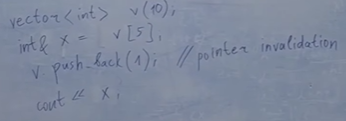 vector<int> v(10);
int& x = v[5];
v.push_back(1); //pointer invalidation
cout << x;